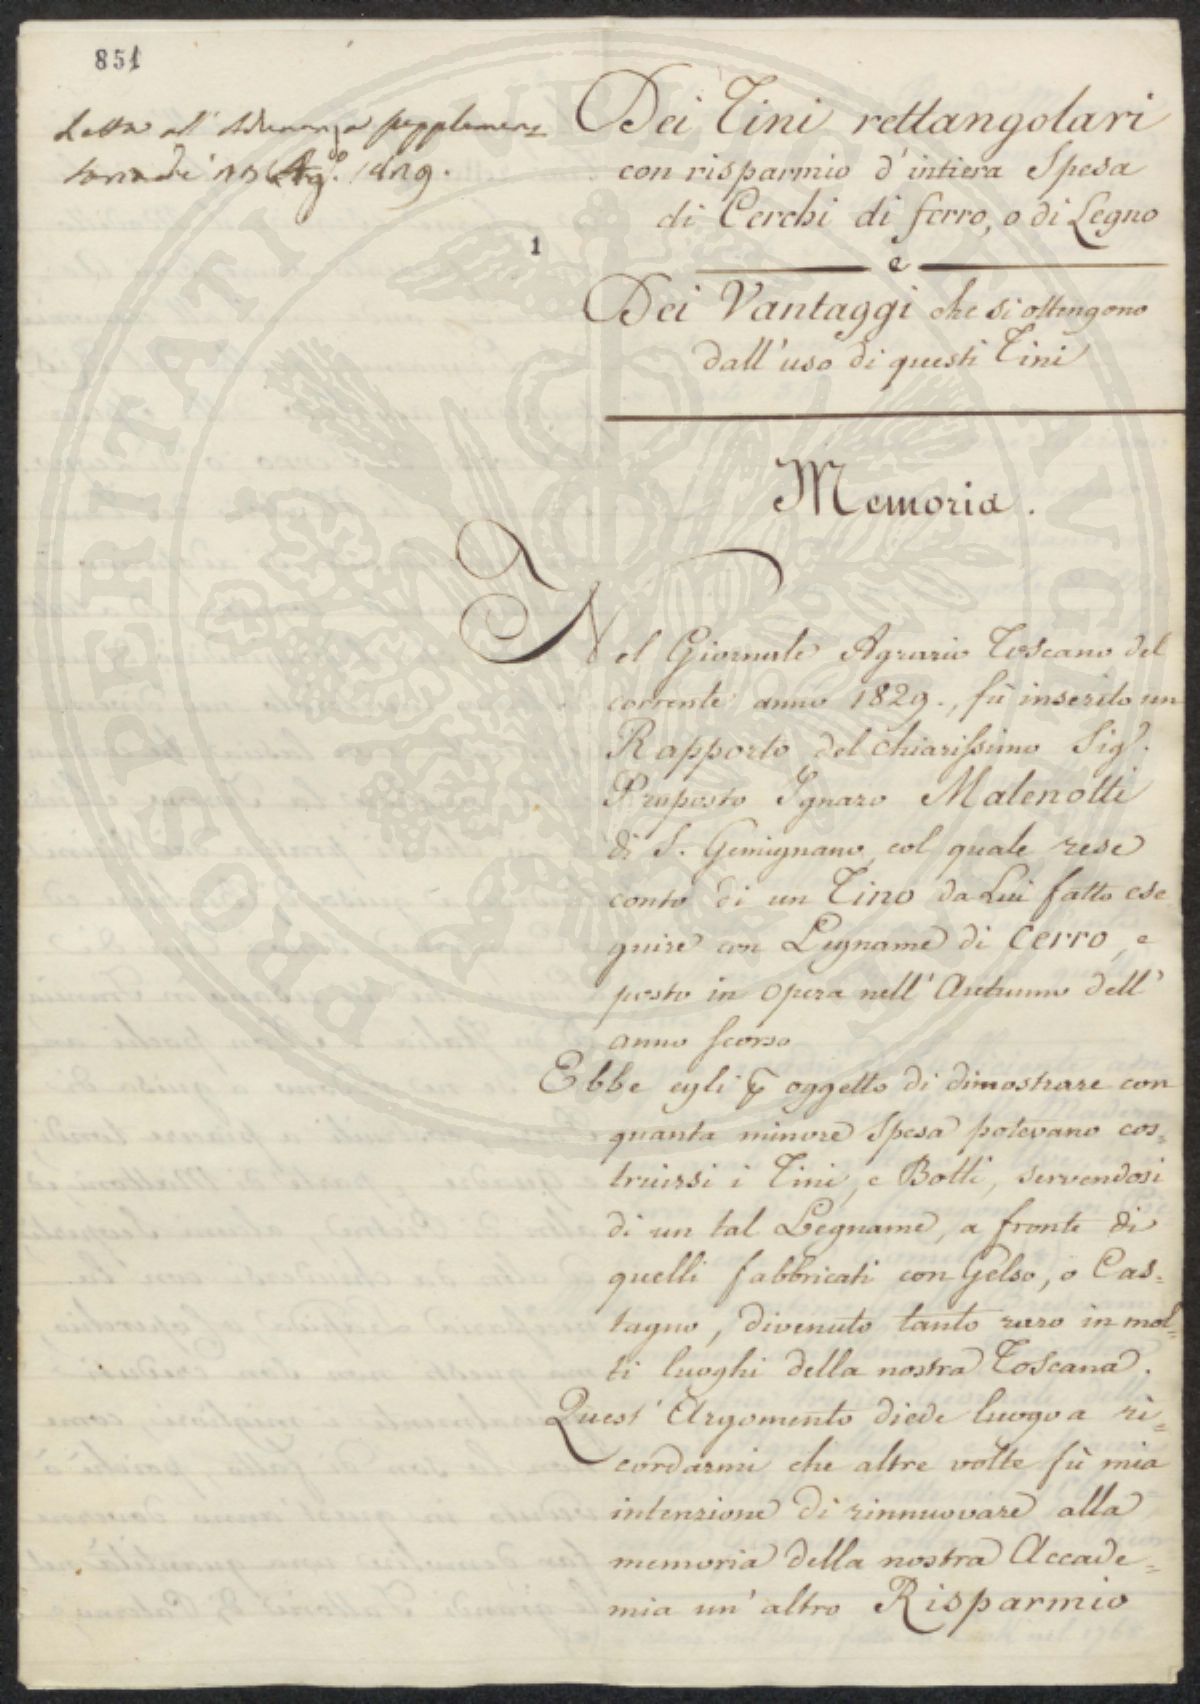 851
Letta all'Adunanza supplemen=
taria de' Ag.º 1829.
1
Dei Tini rettangolari
con risparmio d'intiera Spesa
di Cerchi di ferro, o di Legno
e
Dei Vantaggi che si ottengono
dall'uso di questi Tini
Memoria.
Nel Giornale Agrario Toscano del
corrente anno 1829., fù inserito un
Rapporto del chiarissimo Sigr.
Proposto Ignazo Malenotti
di S. Gemignano, col quale rese
conto di un Tino da Lui fatto ese
guire con Legname di Cerro, e
posto in opera nell'Autunno dell'
anno scorso
Ebbe egli ꝑ oggetto di dimostrare con
quanta minore Spesa potevano cos=
truirsi i Tini, e Botti, servendosi
di un tal Legname, a fronte di
quelli fabbricati con Gelso, o Cas=
tagno, divenuto tanto raro in mol=
ti luoghi della nostra Toscana.
Quest'Argomento diede luogo a ri=
cordarmi che altre volte fù mia
intenzione di rinnuovare alla
memoria della nostra Accade=
mia un'altro Risparmio
PROSPERITATI PUBLICAE AUGENDAE